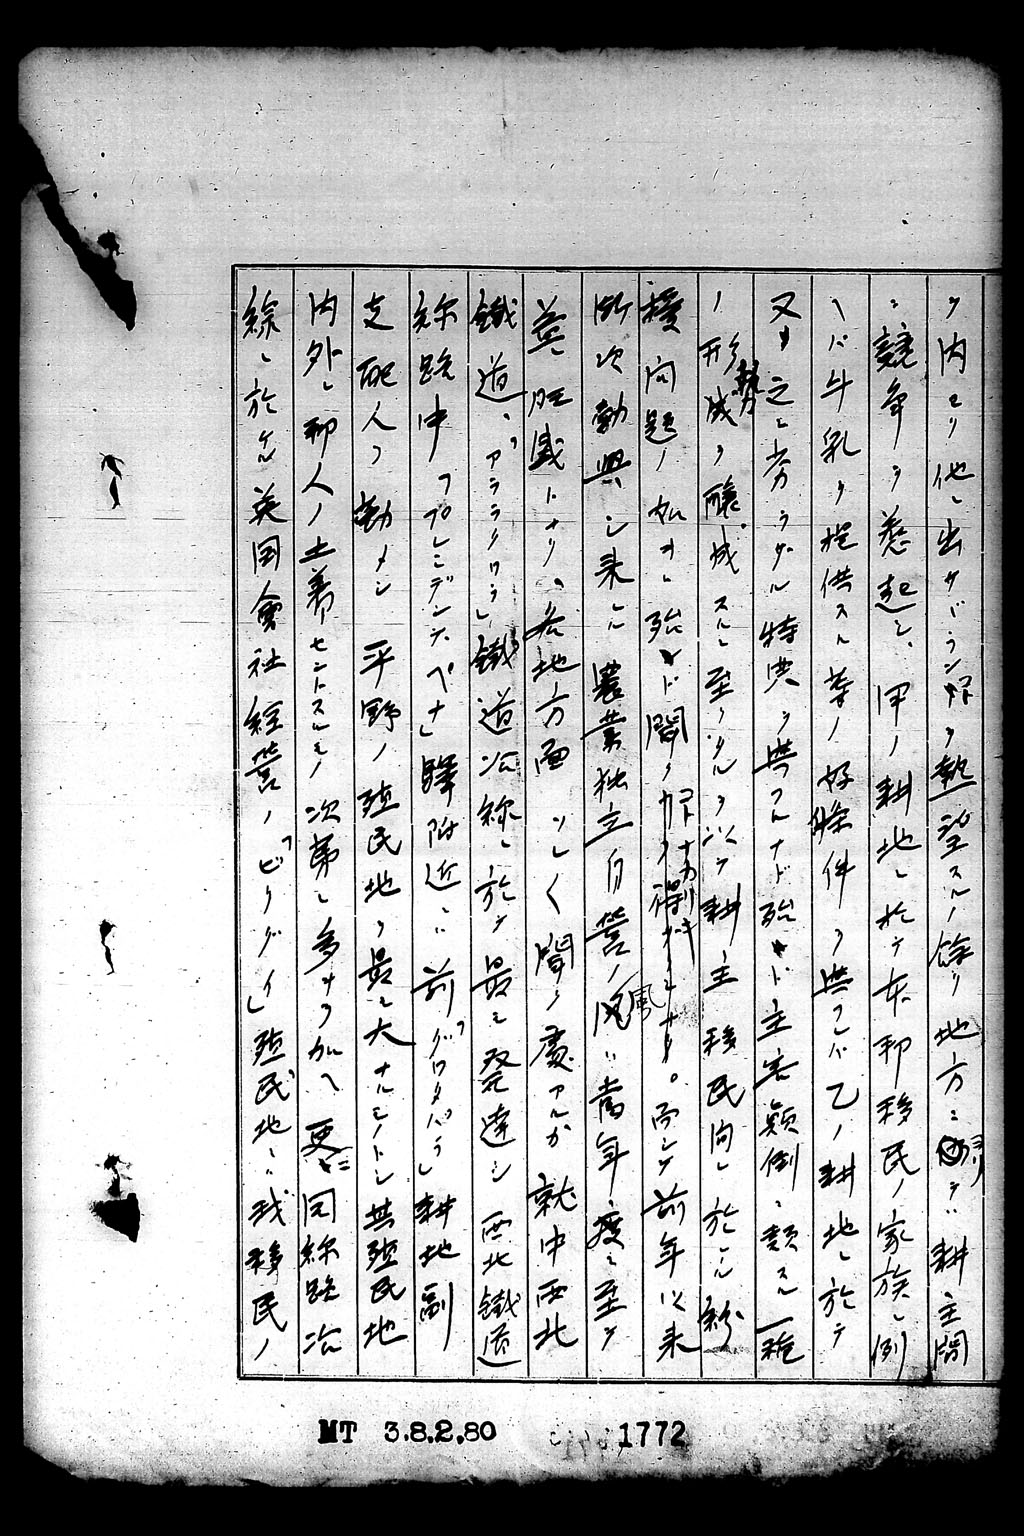 ヲ内ヨリ他ニ出サゞラン事ヲ熱望スルノ餘リ地方ニ限リテハ耕主間
ニ競争ヲ惹起シ、甲ノ耕地ニ於テ本邦移民ノ家族ニ例
ヘバ牛乳ヲ提供スル等ノ好條件ヲ與フレバ乙ノ耕地ニ於テ
又之ニ劣ラザル特典ヲ與フルナド殆ド主客顛倒ニ類スル一種
ノ形勢ヲ醸成スルニ至リタルヲ以テ耕主移民間ニ於ケル紛
擾問題ノ如キハ殆ド聞ク所ナカリキ。而シテ前年以来
漸次勃興シ来レル農業独立自営ノ風ハ當年度ニ至リ
益々旺盛トナリ、各地方面ソレ〱聞ク處アルカ就中西北
鐵道、「アララクワラ」鐵道沿線ニ於テ最モ発達シ西北鐵道
線路中「プレシデンテ、ペナ」驛附近ニハ前「グワタパラ」耕地副
支配人ヲ勤メシ平野ノ殖民地ヲ最モ大ナルモノトシ其殖民地
内外ニ邦人ノ土着セントスルモノ次第ニ多キヲ加ヘ更ニ同線路沿
線ニ於ケル英国會社経営ノ「ビリグイ」殖民地ニハ我移民ノ
MT 3.8.2.80
1772